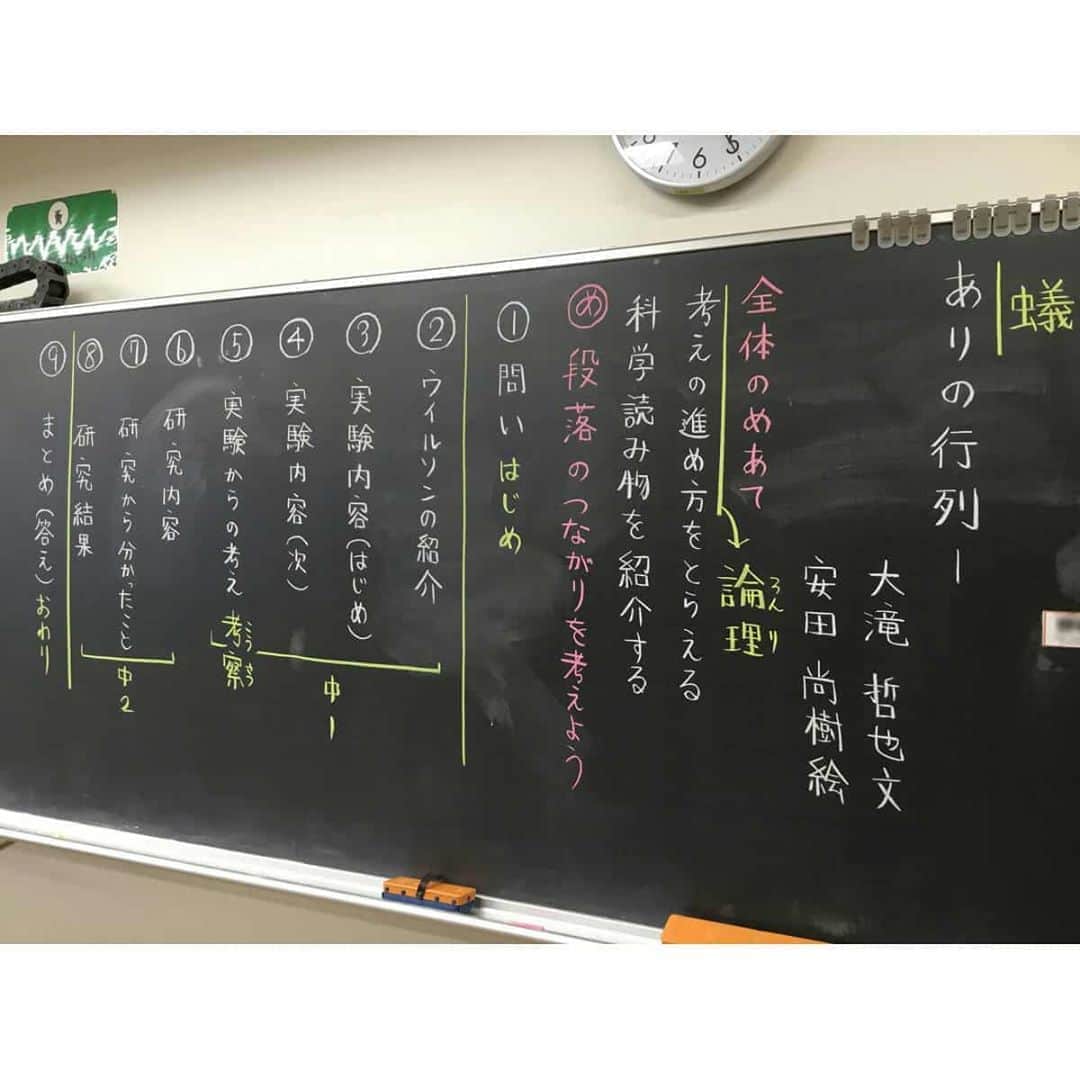 蟻
ありの行列ー
大滝 哲也文
安田 尚樹絵
全体のめあて
考えの進め方をとらえる
論理
ろんり
科学読み物を紹介する
め 段落のつながりを考えよう
① 問い はじめ
② ウイルソンの紹介
③ 実験内容(はじめ)
④ 実験内容(次)
⑤ 実験からの考え 考察
こうさつ
中1
⑥ 研究内容
⑦ 研究から分かったこと
⑧ 研究結果
中2
⑨ まとめ(答え)おわり